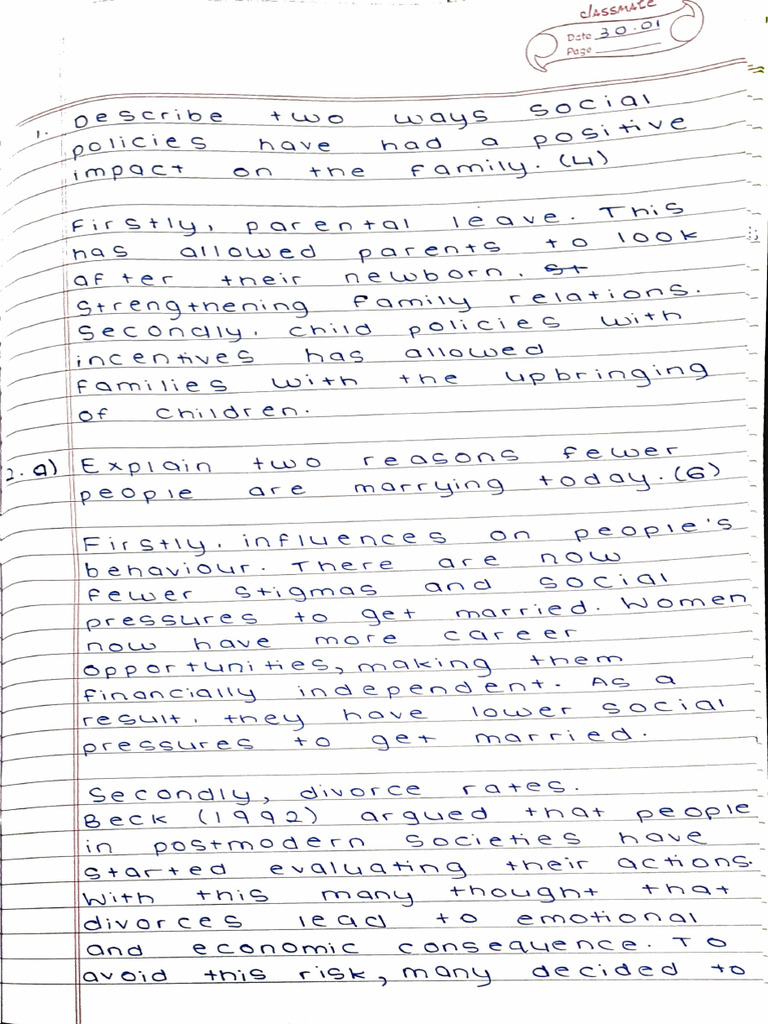 classmate
Date 30.01
Page
1. Describe two ways social
policies have had a positive
impact on the family. (4)
Firstly, parental leave. This
has allowed parents to look
after their newborn. st
strengthening family relations.
Secondly, child policies with
incentives has allowed
families with the upbringing
of children.
2. a) Explain two reasons fewer
people are marrying today. (6)
Firstly, influences on people's
behaviour. There are now
fewer stigmas and social
pressures to get married. Women
now have more career
opportunities, making them
financially independent. As a
result, they have lower social
pressures to get married.
Secondly, divorce rates.
Beck (1992) argued that people
in postmodern societies have
started evaluating their actions.
With this many thought that
divorces lead to emotional
and economic consequence. To
avoid this risk, many decided to